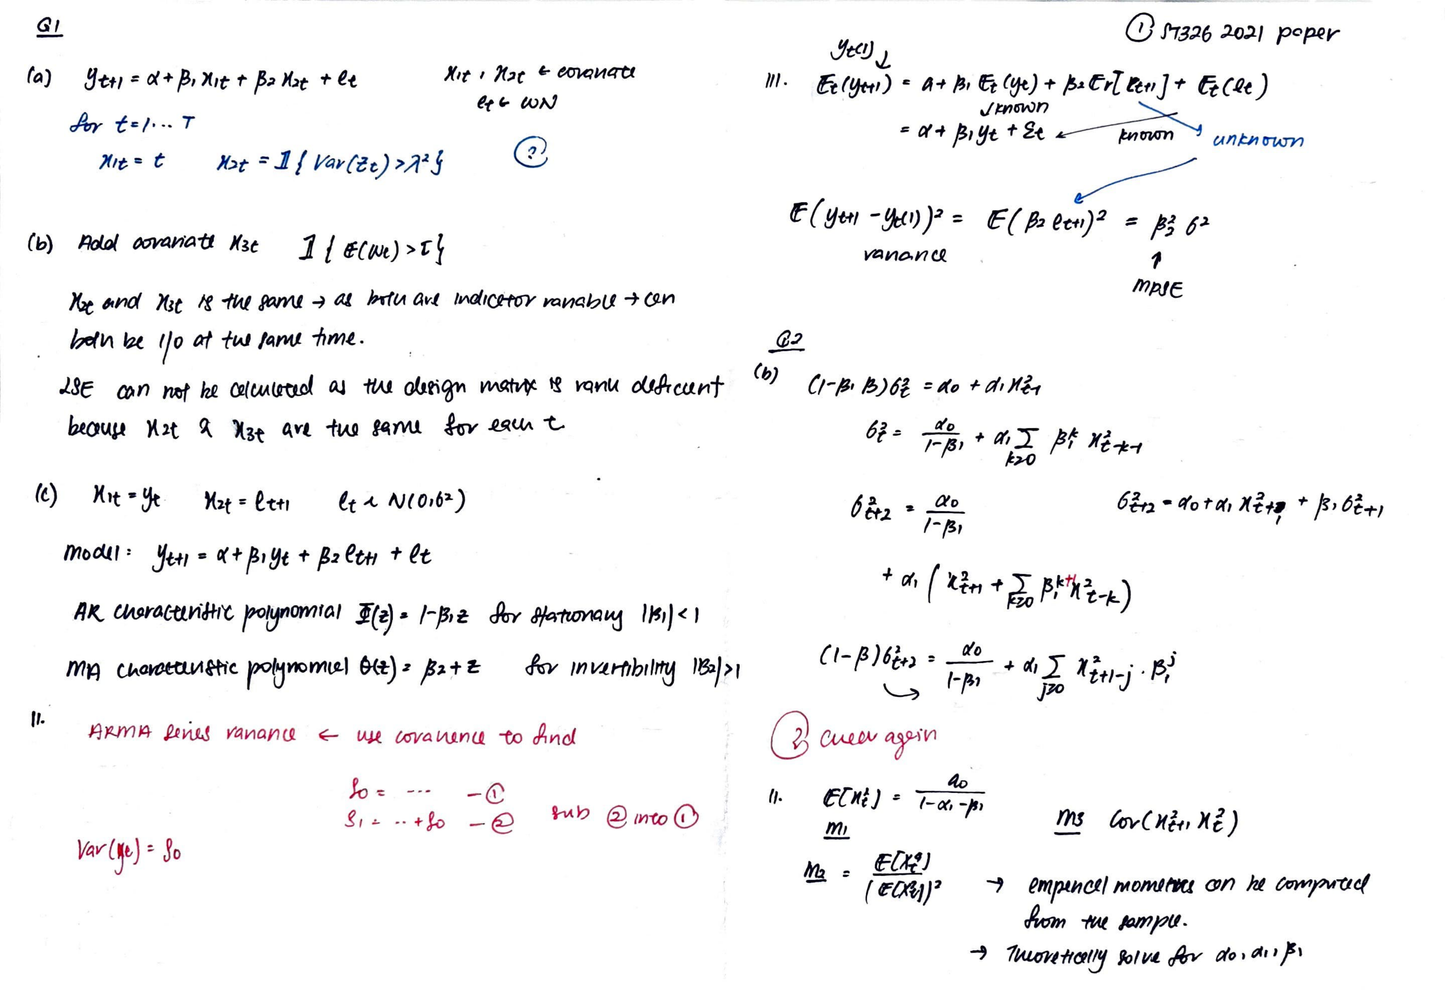 ① ST326 2021 paper
Q1
(a) y_{t+1} = α + β₁ x_{1t} + β₂ x_{2t} + e_t    x_{1t}, x_{2t} ← covariate
e_t ← WN
for t = 1 ... T
x_{1t} = t    x_{2t} = 𝟙{Var(Z_t) > λ²}    ②
(b) Add covariate x_{3t}    𝟙{E(W_t) > τ}
x_{2t} and x_{3t} is the same → as both are indicator variable → can
both be 1/0 at the same time.
LSE can not be calculated as the design matrix is rank deficient
because x_{2t} & x_{3t} are the same for each t
(c) x_{1t} = y_t    x_{2t} = e_{t+1}    e_t ~ N(0, σ²)
model: y_{t+1} = α + β₁ y_t + β₂ e_{t+1} + e_t
AR characteristic polynomial Φ(z) = 1 - β₁z for stationary |β₁| < 1
MA characteristic polynomial θ(z) = β₂ + z for invertibility |β₂| > 1
ii.
ARMA series variance ← use covariance to find
γ₀ = ... - ①
γ₁ = .. + γ₀ - ②    sub ② into ①
Var(y_t) = γ₀
y_t(1) ↓
iii. E_t(y_{t+1}) = α + β₁ E_t(y_t) + β₂ E_t[e_{t+1}] + E_t(e_t)
↓ known
= α + β₁ y_t + ε_t ← known    unknown
E(y_{t+1} - y_t(1))² = E(β₂ e_{t+1})² = β₂² σ²
variance    ↑
MPSE
Q2
(b) (1 - β₁ B) σ_t² = α₀ + α₁ x²_{t-1}
σ_t² = α₀/(1-β₁) + α₁ Σ_{k≥0} β₁^k x²_{t-k-1}
σ²_{t+2} = α₀/(1-β₁)    σ²_{t+2} = α₀ + α₁ x²_{t+1} + β₁ σ²_{t+1}
+ α₁ (x²_{t+1} + Σ_{k≥0} β₁^{k+1} x²_{t-k})
(1-β) σ²_{t+2} = α₀/(1-β₁) + α₁ Σ_{j≥0} x²_{t+1-j} · β₁^j
② check again
ii. E[x_t²] = α₀/(1-α₁-β₁)
m1    m3 Cov(x²_{t+1}, x_t²)
m2 = E[x_t⁴]/(E[x_t²])² → empirical moments can be computed
from the sample.
→ Theoretically solve for α₀, α₁, β₁